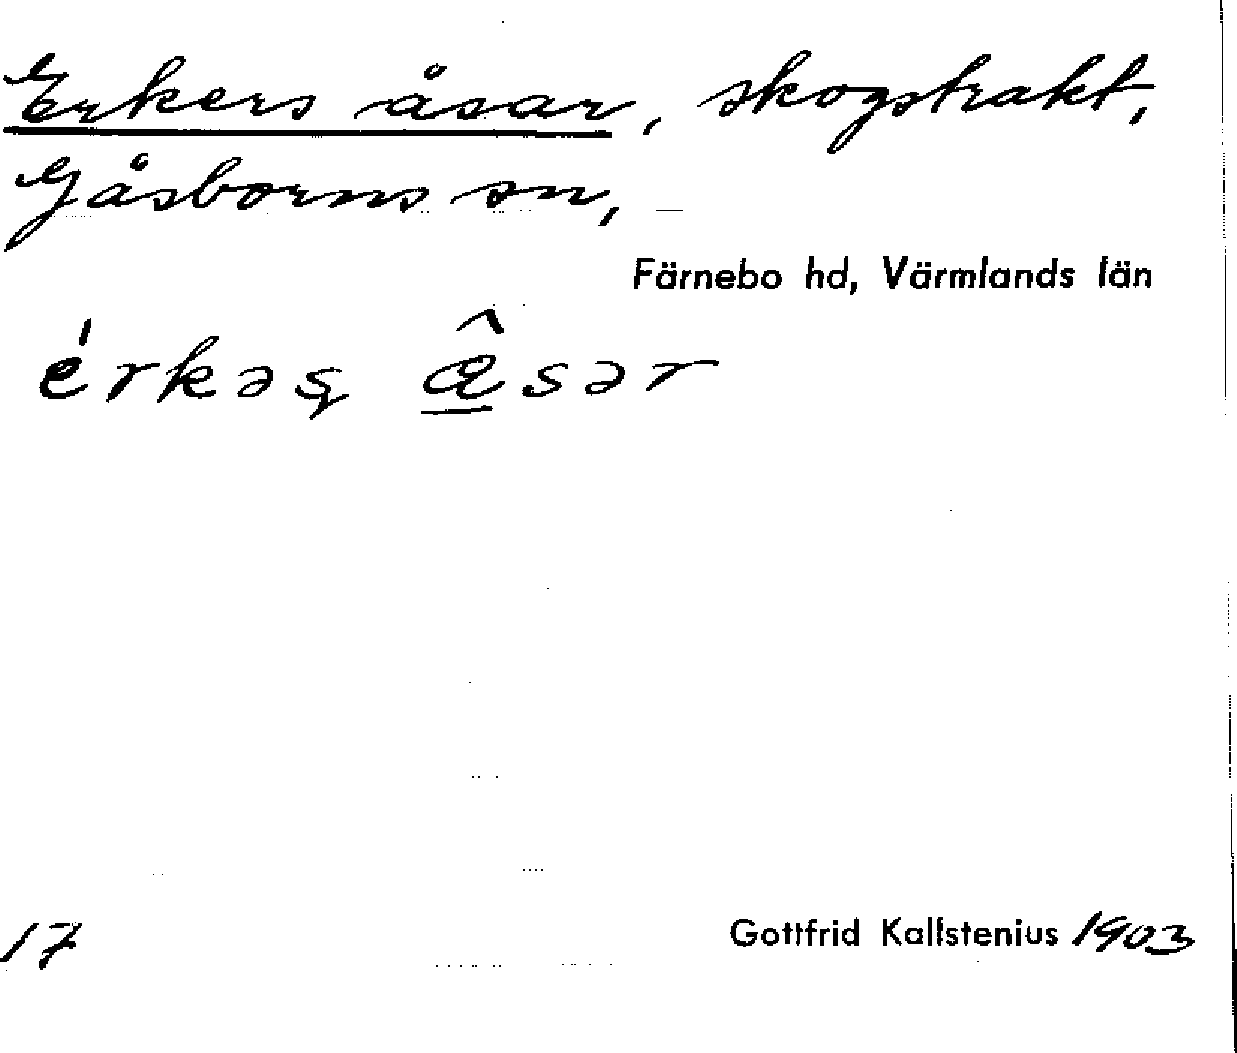 Erkers åsar, skogstrakt,
Gåsborns sn,
Färnebo hd, Värmlands län
érkəʂ â̲sər
17
Gottfrid Kallstenius 1903